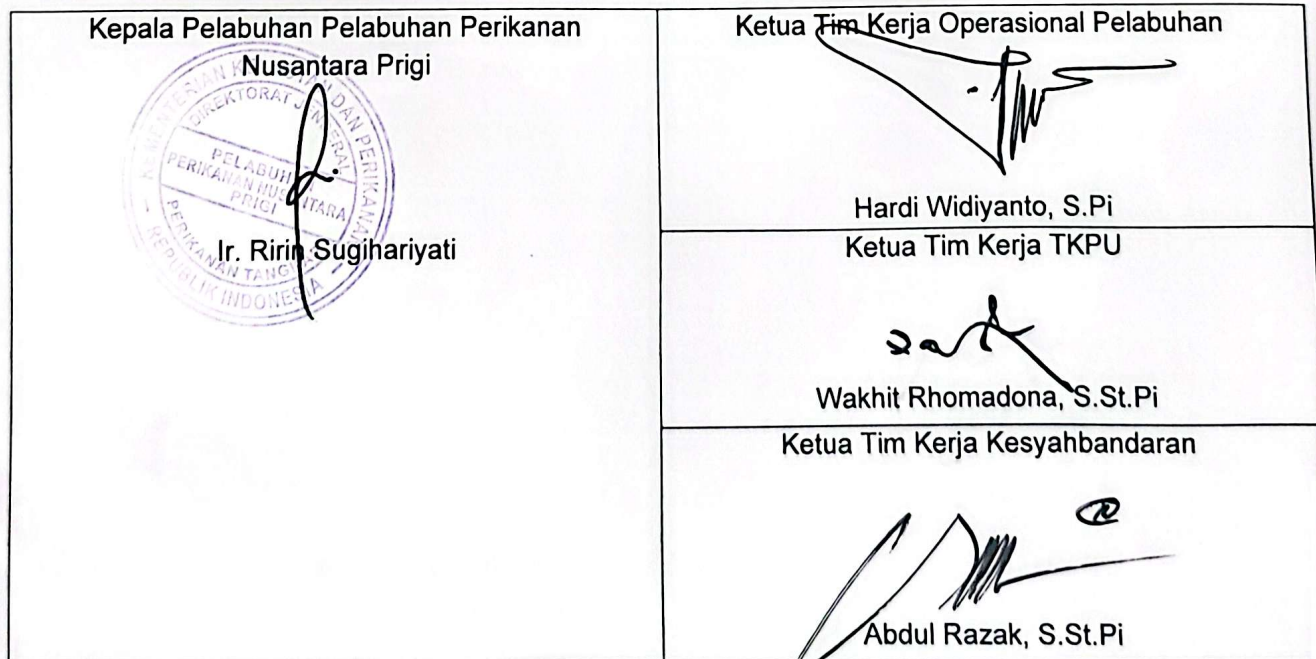 Kepala Pelabuhan Pelabuhan Perikanan
Nusantara Prigi
KEMENTERIAN KELAUTAN DAN PERIKANAN
DIREKTORAT JENDERAL
PELABUHAN
PERIKANAN NUSANTARA
PRIGI
PERIKANAN TANGKAP
REPUBLIK INDONESIA
Ir. Ririn Sugihariyati
Ketua Tim Kerja Operasional Pelabuhan
Hardi Widiyanto, S.Pi
Ketua Tim Kerja TKPU
Wakhit Rhomadona, S.St.Pi
Ketua Tim Kerja Kesyahbandaran
Abdul Razak, S.St.Pi